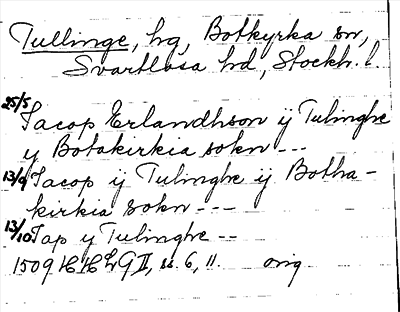 Tullinge, hg, Botkyrka sn,
Svartlösa hd, Stockh. l.
25/5 Jacop Erlandhson ÿ Tulinghe
y Botakirkia sokn ---
13/9 Jacop ÿ Tulinghe ÿ Botha-
kirkia sokn ---
13/10 Jap y Tulinghe --
1509 HH LG II, ss. 6, 11. orig.